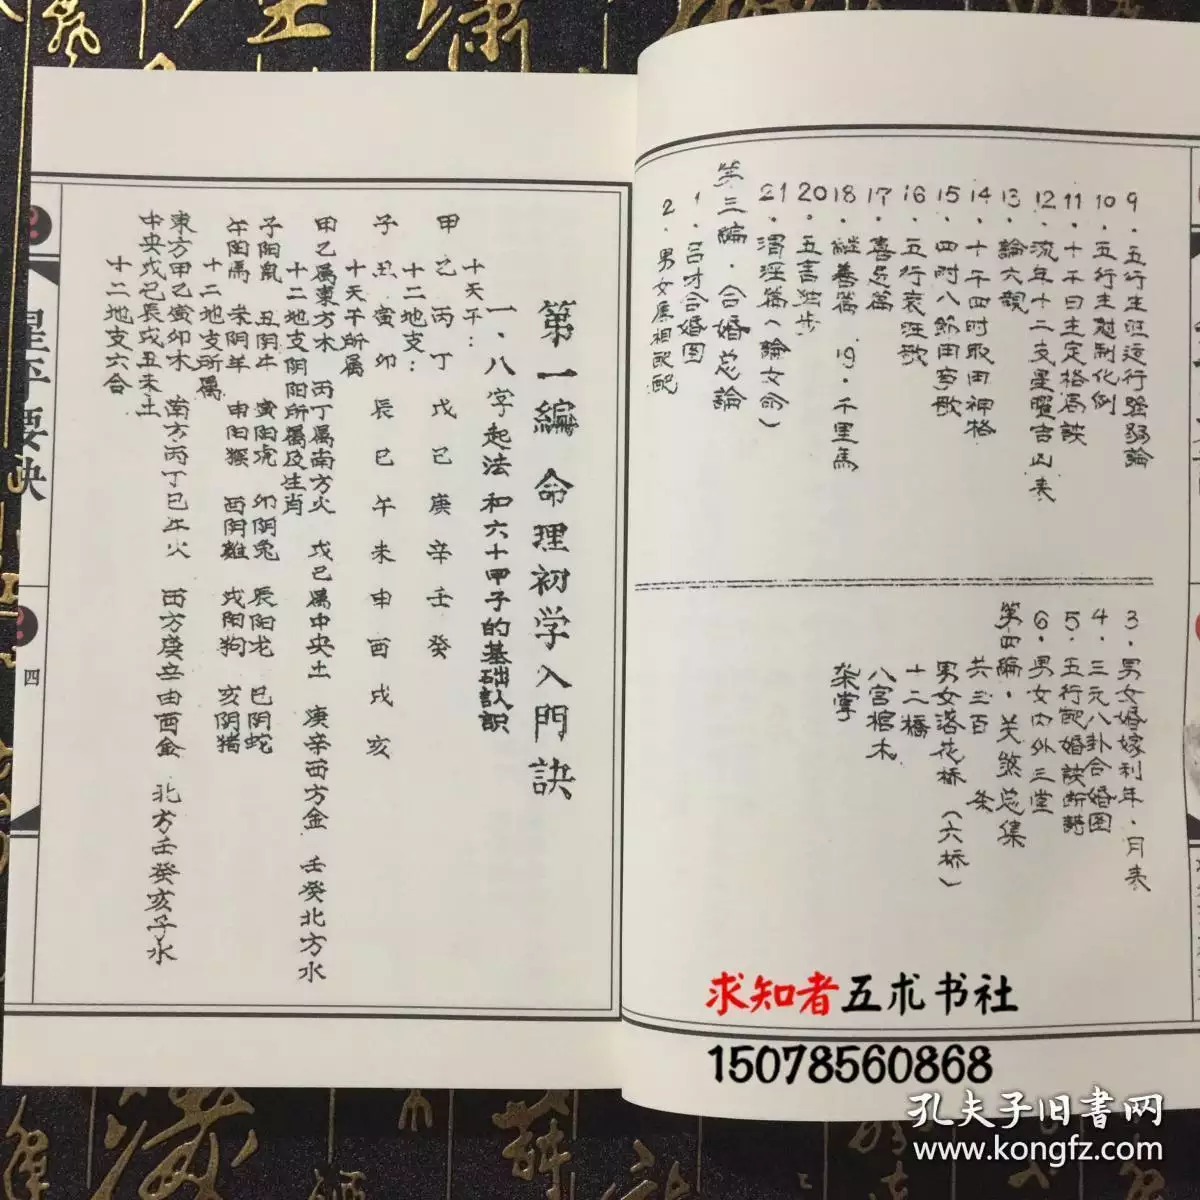 9．五行生旺运行强弱論
10．五行生尅制化例
11．十干日主定格局訣
12．流年十二支星曜吉凶表
13．論六親
14．十干四时取用神格
15．四时八節用事歌
16．五行衰旺歌
17．喜忌篇
18．継善篇 19．千里馬
20．五言独步
21．渭泾篇（論女命）
第三编．合婚总論
1．吕才合婚图
2．男女属相配配
3．男女婚嫁利年．月表
4．三元八卦合婚图
5．五行配婚訣断詩
6．男女内外三堂
第四编．关煞总集
共三百 条
男女落花桥（六桥）
十二橋
八宫棺木
架掌
第一編 命理初学入門訣
一．八字起法和六十甲子的基础认识
十天干：
甲乙丙丁戊己庚辛壬癸
十二地支：
子丑寅卯辰巳午未申酉戌亥
十天干所属
甲乙属東方木 丙丁属南方火 戊己属中央土 庚辛西方金 壬癸北方水
十二地支阴阳所属及生肖
子阳鼠 丑阴牛 寅阳虎 卯阴兔 辰阳龙 巳阴蛇
午阳馬 未阴羊 申阳猴 酉阴雞 戌阳狗 亥阴猪
十二地支所属
東方甲乙寅卯木 南方丙丁巳午火 西方庚辛申酉金 北方壬癸亥子水
中央戊己辰戌丑未土
十二地支六合
星平要诀
四
求知者五术书社
15078560868
孔夫子旧書网
www.kongfz.com